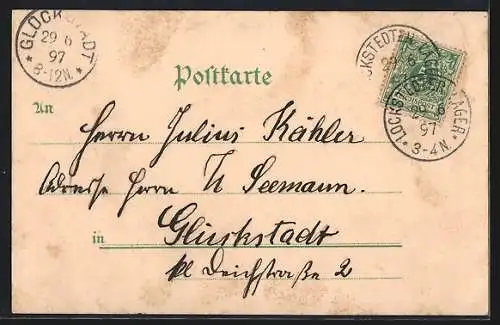 GLÜCKSTADT
29 6
97
8-12N.
LOCKSTEDTER LAGER
29 6
Postkarte
LOCKSTEDTER LAGER
29 6
97
3-4N.
An
Herrn Julius Kähler
Adresse Herrn H Seemann.
in Glückstadt
kl Deichstraße 2